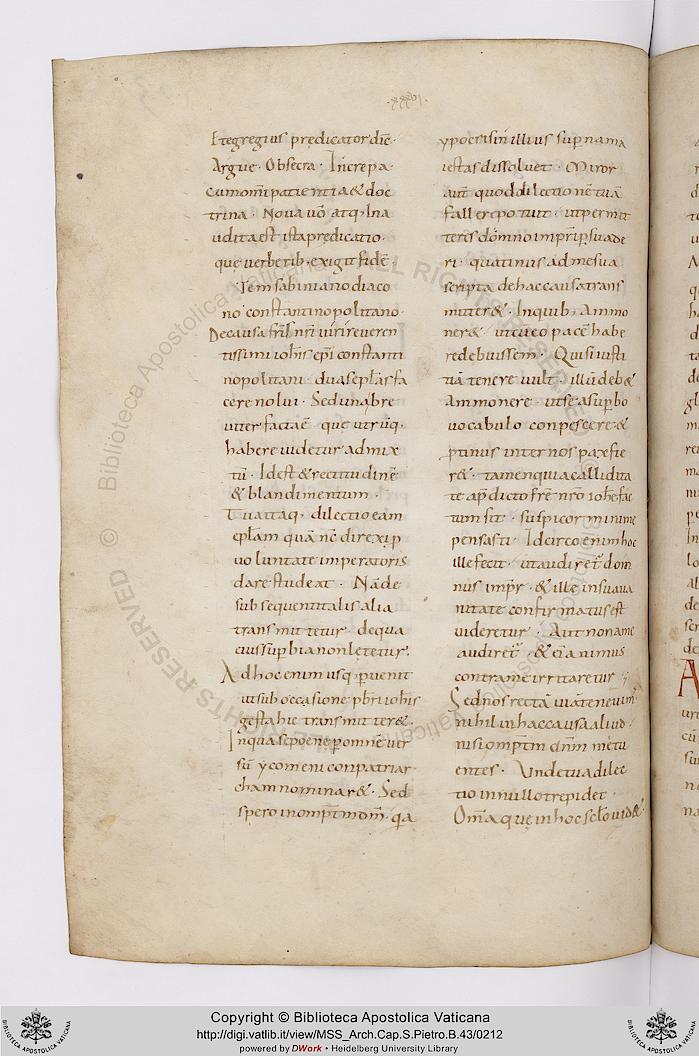 ·xxxvi·
Et egregius predicator dic̄·
Argue · Obsecra · Increpa·
cum om̄i patientia & doc
trina · Noua uō atq; Ina
udita est ista predicatio·
que uerberib; exigit fidē·
Item sabiniano diaco
no constantinopolitano·
De causa fr̄is nr̄i uiri reueren
tissimi ioh̄is ep̄i constanti
nopolitani · duas epl̄as fa
cere nolui · Sed una bre
uiter facta ē · que utrūq;
habere uidetur admix
tū · Id est & rectitudinē
& blandimentum ·
Tua itaq; dilectio eam
epl̄am quā nc̄ direxi p
uoluntate imperatoris
dare studeat · Nā de
subsequenti talis alia
transmittetur · de qua
eius supbia non letetur·
Ad hoc enim usq; puenit
ut sub occasione pb̄ri ioh̄is
gesta hic transmitter&·
In qua se pene p omnem uer
sū ycomenicon patriar
cham nominar& · Sed
spero in omp̄tm dm̄ · q̨a
ypocrisin illius supna ma
iestas dissoluet · Miror
aut̄ quod dilectionē tuā
fallere potuit · ut permit
teris domno imp̄r psuade
ri · quatinus ad me sua
scripta de hac causa trans
mitter& · In quib; ammo
ner& · ut cū eo pacē habe
re debuissem · Qui si iusti
tiā tenere uult · illū deb&
ammonere · ut se a supbo
uocabulo conpescere &
ptinus inter nos pax fie
r& · tamen quia calliditа
te ap̄ dicto fr̄e nr̄o ioh̄e fac
tum sit · suspicor minime
pensasti · Idcirco enim hoc
ille fecit · ut audiret̄ dom
nus imp̄r · & ille in sua ua
nitate confirmatus est
uideretur · Aut non a me
audiret̄ · & eī animus
contra me irritaretur ·
Sed nos rectā uiā teneuim·
nihil in hac causa aliud·
nisi omp̄tm dnm̄ metu
entes · Unde tua dilec
tio in nullo trepidet ·
Om̄a que in hoc scl̄o uid&
Copyright © Biblioteca Apostolica Vaticana
http://digi.vatlib.it/view/MSS_Arch.Cap.S.Pietro.B.43/0212
powered by DWork • Heidelberg University Library
© Biblioteca Apostolica Vaticana
ALL RIGHTS RESERVED